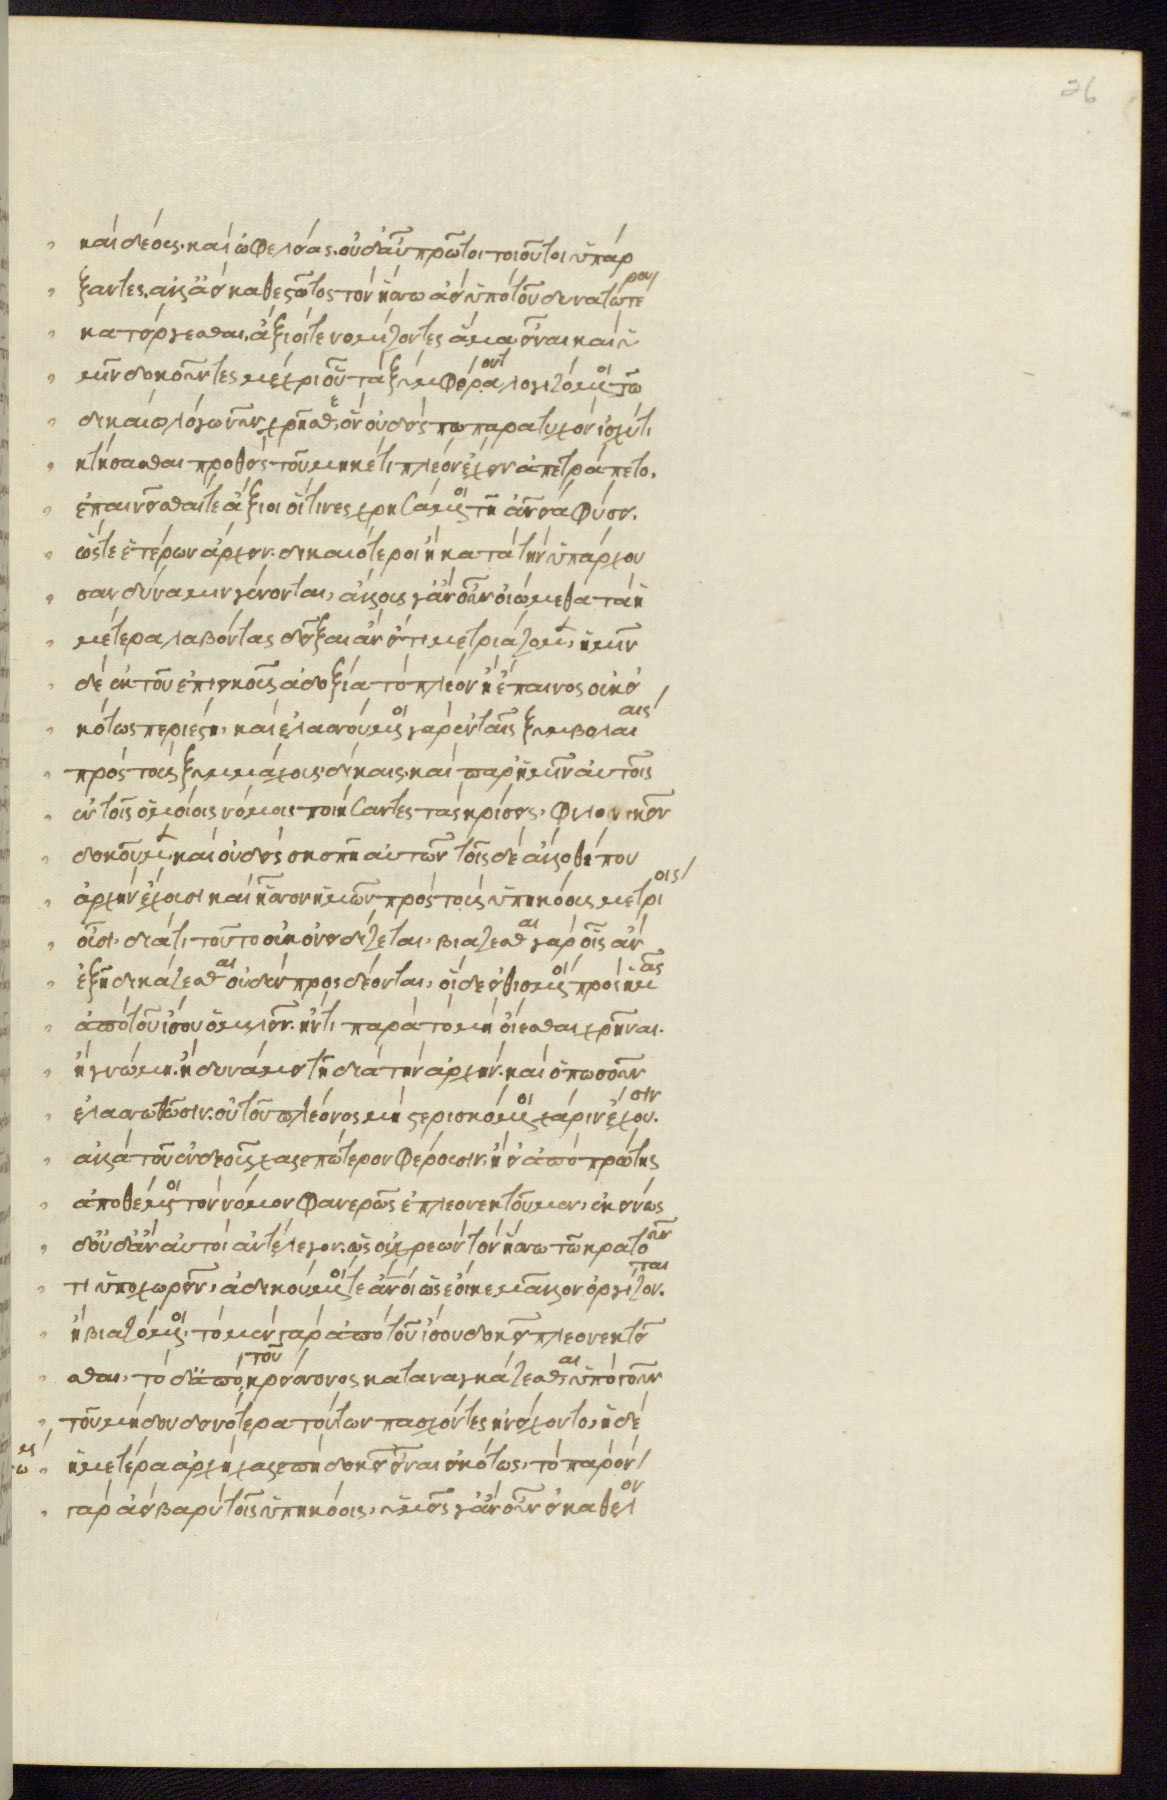 26
καὶ δέους καὶ ὠφελείας. οὐδ' αὖ πρῶτοι τοιοῦτοι ὑπάρ
ξαντες. ἀλλ' ἀεὶ καθεστῶτος τὸν ἥσσω ἀεὶ ὑπὸ τοῦ δυνατωτέρου
κατείργεσθαι, ἄξιοί τε νομίζοντες ἅμα εἶναι καὶ ὑ
μῖν δοκοῦντες μέχρι οὗ τὰ ξυμφέροντα λογιζόμενοι τῶ
δικαίω λόγω νῦν χρῆσθε, ὃν οὐδείς πω παρατυχὸν ἰσχύϊ τι
κτήσασθαι προθεὶς τοῦ μηκέτι πλέον ἔχειν ἀπετράπετο.
ἐπαινεῖσθαί τε ἄξιοι οἵτινες χρησάμενοι τῆ ἀνθρωπεία φύσει.
ὥστε ἑτέρων ἄρχειν. δικαιότεροι ἢ κατὰ τὴν ὑπάρχου
σαν δύναμιν γένονται, ἄλλους γ' ἂν οὖν οἰόμεθα τὰ ἡ
μέτερα λαβόντας δεῖξαι ἂν εἴ τι μετριάζομεν, ἡμῖν
δὲ ἐκ τοῦ ἐπιεικοῦς ἀδοξία τὸ πλέον ἢ ἔπαινος οὐκ εἰ
κότως περιέστη, καὶ ἐλασσούμενοι γὰρ ἐν ταῖς ξυμβολαίαις
πρὸς τοὺς ξυμμάχους δίκαις, καὶ παρ' ἡμῖν αὐτοῖς
ἐν τοῖς ὁμοίοις νόμοις ποιήσαντες τὰς κρίσεις, φιλοδικεῖν
δοκοῦμεν, καὶ οὐδεὶς σκοπεῖ αὐτῶν τοῖς δὲ ἄλλοθί που
ἀρχὴν ἔχουσι καὶ ἧσσον ἡμῶν πρὸς τοὺς ὑπηκόους μετρίοις
οὖσι, διότι τοῦτο οὐκ ὀνειδίζεται, βιάζεσθαι γὰρ οἷς ἂν
ἐξῆ δικάζεσθαι οὐδὲν προσδέονται, οἱ δὲ εἰθισμένοι πρὸς ἡμᾶς
ἀπὸ τοῦ ἴσου ὁμιλεῖν. ἤν τι παρὰ τὸ μὴ οἴεσθαι χρῆναι.
ἢ γνώμη. ἢ δυνάμει τῆ διὰ τὴν ἀρχὴν. καὶ ὁπωσοῦν
ἐλασσωθῶσιν. οὐ τοῦ πλέονος μὴ στερισκόμενοι χάριν ἔχουσιν.
ἀλλὰ τοῦ ἐνδεοῦς χαλεπώτερον φέρουσιν, ἢ εἰ ἀπὸ πρώτης
ἀποθέμενοι τὸν νόμον φανερῶς ἐπλεονεκτοῦμεν, ἐκείνως
δ' οὐδ' ἂν αὐτοὶ ἀντέλεγον. ὡς οὐ χρεὼν τὸν ἥσσω τῶ κρατοῦν
τι ὑποχωρεῖν, ἀδικούμενοί τε ἄνθρωποι ὡς ἔοικε μᾶλλον ὀργίζονται.
ἢ βιαζόμενοι. τὸ μὲν γὰρ ἀπὸ τοῦ ἴσου δοκεῖ πλεονεκτεῖ
σθαι, τὸ δ' ἀπὸ τοῦ κρείσσονος καταναγκάζεσθαι, ὑπὸ γοῦν
τοῦ μήδου δεινότερα τούτων πάσχοντες ἠνείχοντο, ἡ δὲ
ἡμετέρα ἀρχὴ χαλεπὴ δοκεῖ εἶναι εἰκότως, τὸ παρὸν
γὰρ ἀεὶ βαρὺ τοῖς ὑπηκόοις, ὑμεῖς γ' ἂν οὖν εἰ καθελόν